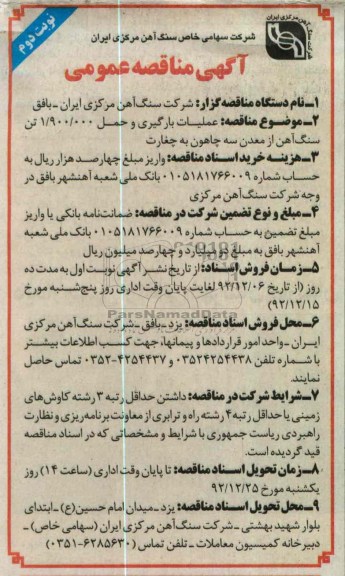 نوبت دوم
شرکت سنگ آهن مرکزی ایران
شرکت سهامی خاص سنگ آهن مرکزی ایران
آگهی مناقصه عمومی
۱ــ نام دستگاه مناقصه گزار: شرکت سنگ آهن مرکزی ایران ـ بافق
۲ــ موضوع مناقصه: عملیات بارگیری و حمل ۱/۹۰۰/۰۰۰ تن
سنگ آهن از معدن سه چاهون به چغارت
۳ــ هزینه خرید اسناد مناقصه: واریز مبلغ چهارصد هزار ریال به
حساب شماره ۰۱۰۵۱۸۱۷۶۶۰۰۹ بانک ملی شعبه آهنشهر بافق در
وجه شرکت سنگ آهن مرکزی
۴ــ مبلغ و نوع تضمین شرکت در مناقصه: ضمانت‌نامه بانکی یا واریز
مبلغ تضمین به حساب شماره ۰۱۰۵۱۸۱۷۶۶۰۰۹ بانک ملی شعبه
آهنشهر بافق به مبلغ دو میلیارد و چهارصد میلیون ریال
۵ــ زمان فروش اسناد: از تاریخ نشر آگهی نوبت اول به مدت ده
روز (از تاریخ ۹۲/۱۲/۰۶ لغایت پایان وقت اداری روز پنج‌شنبه مورخ
۹۲/۱۲/۱۵)
ParsNamadData
۶ــ محل فروش اسناد مناقصه: یزد ـ بافق ـ شرکت سنگ آهن مرکزی
ایران ـ واحد امور قراردادها و پیمانها، جهت کسب اطلاعات بیشتر
با شماره تلفن ۰۳۵۲۴۲۵۴۴۳۸ و ۴۲۵۴۴۳۷-۰۳۵۲ تماس حاصل
نمایند.
۷ــ شرایط شرکت در مناقصه: داشتن حداقل رتبه ۳ رشته کاوش‌های
زمینی یا حداقل رتبه ۴ رشته راه و ترابری از معاونت برنامه‌ریزی و نظارت
راهبردی ریاست جمهوری با شرایط و مشخصاتی که در اسناد مناقصه
قید گردیده است.
۸ــ زمان تحویل اسناد مناقصه: تا پایان وقت اداری (ساعت ۱۴) روز
یکشنبه مورخ ۹۲/۱۲/۲۵
۹ــ محل تحویل اسناد مناقصه: یزد ـ میدان امام حسین(ع) ـ ابتدای
بلوار شهید بهشتی ـ شرکت سنگ آهن مرکزی ایران (سهامی خاص) ـ
دبیرخانه کمیسیون معاملات ـ تلفن تماس (۶۲۸۵۶۳۰-۰۳۵۱)